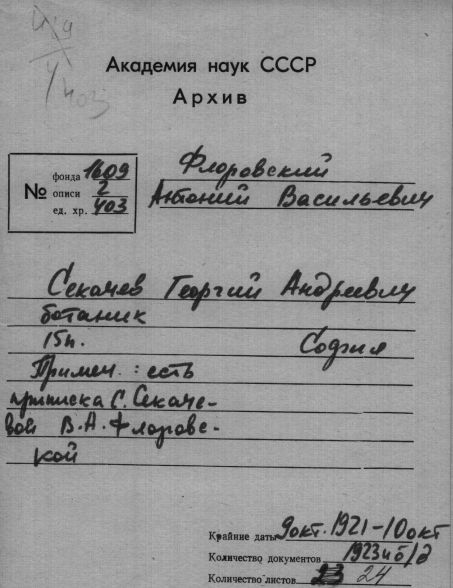 4403
Академия наук СССР
Архив
№
фонда 1609
описи 2
ед. хр. 403
Флоровский
Антоний Васильевич
Секачев Георгий Андреевич
ботаник
15п. София
Примеч.: есть
приписка С. Секаче-
вой В.А. Флоровс-
кой
Крайние даты 9окт. 1921-10окт
Количество документов 1923 и б/д
Количество листов 23 24